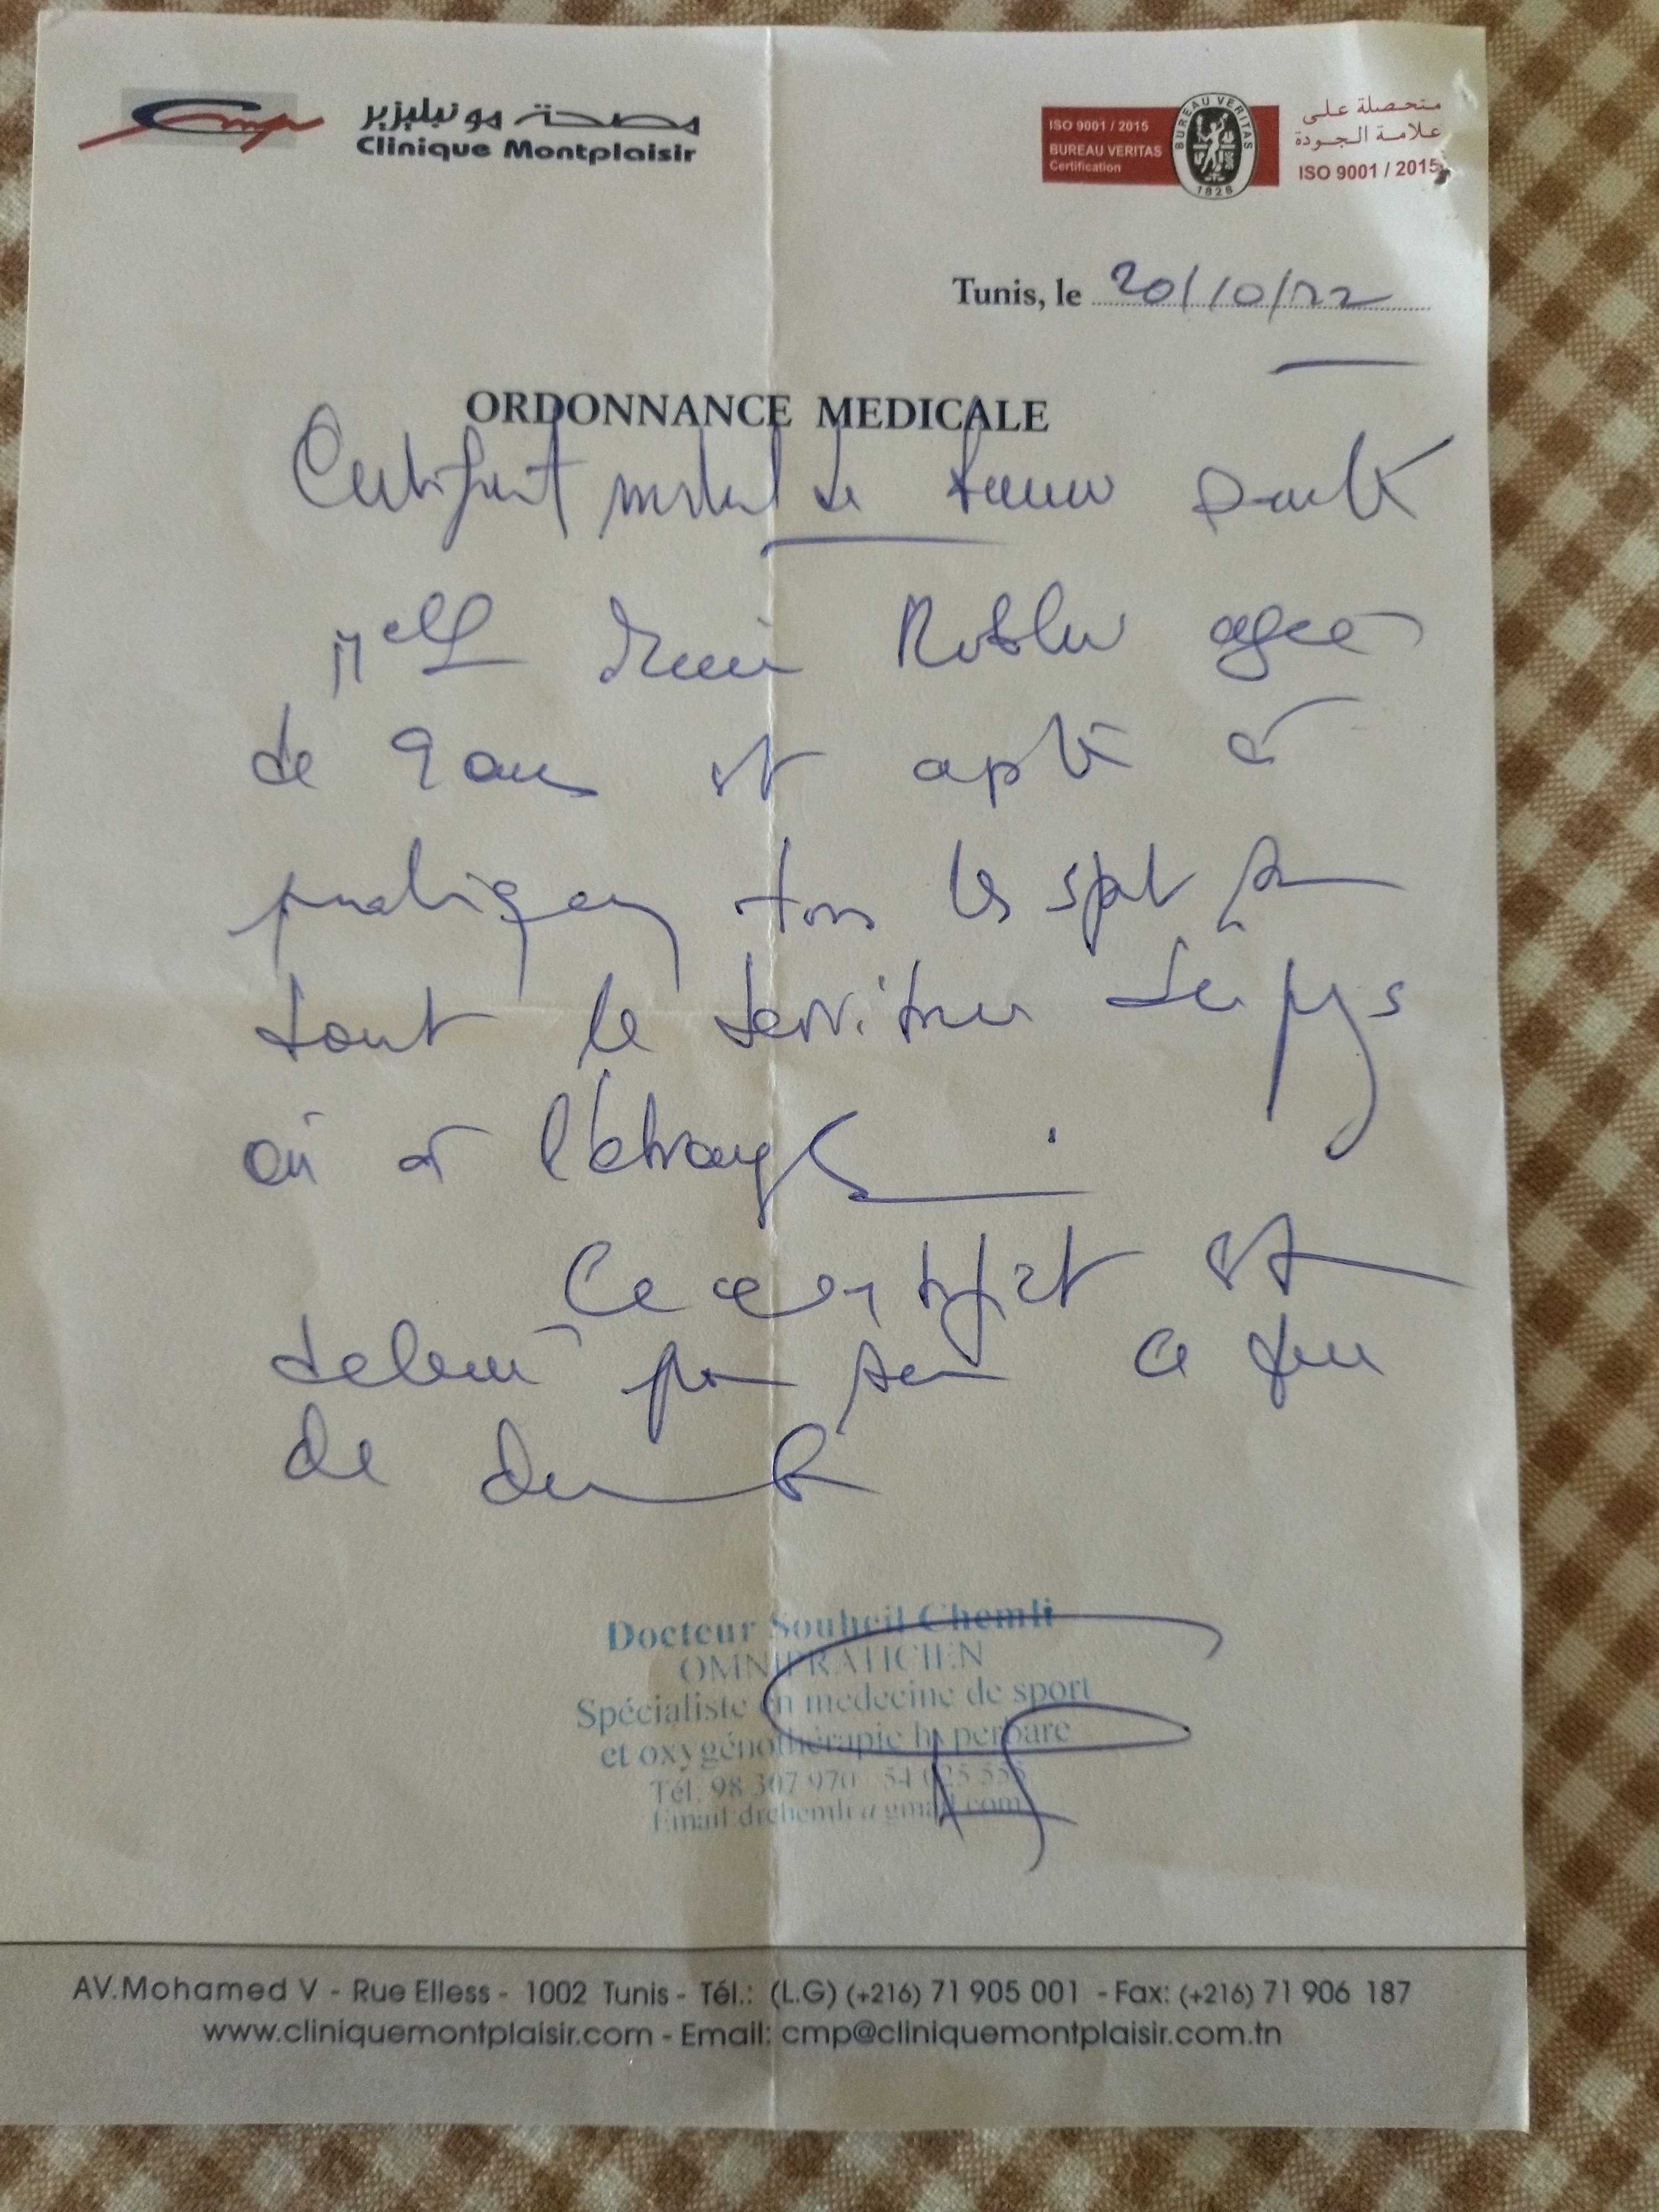 مصحة مونبليزير
Clinique Montplaisir
ISO 9001 / 2015
BUREAU VERITAS
Certification
BUREAU VERITAS
1828
متحصلة على
علامة الجودة
ISO 9001 / 2015
Tunis, le 20/10/22
ORDONNANCE MEDICALE
Certificat médical de bonne santé
Melle agée
de 9 ans est apte à
pratiquer tous les sport sur
tout le territoire du pays
ou à l'étranger.
Ce certificat est
délivré pour servir ce que
de droit
Docteur Souheil Chemli
OMNIPRATICIEN
Spécialiste en medecine de sport
et oxygénothérapie hyperbare
Tél: 98 307 970 54 025 555
Email:drchemli@gmail.com
AV.Mohamed V - Rue Elless - 1002 Tunis - Tél.: (L.G) (+216) 71 905 001 - Fax: (+216) 71 906 187
www.cliniquemontplaisir.com - Email: cmp@cliniquemontplaisir.com.tn